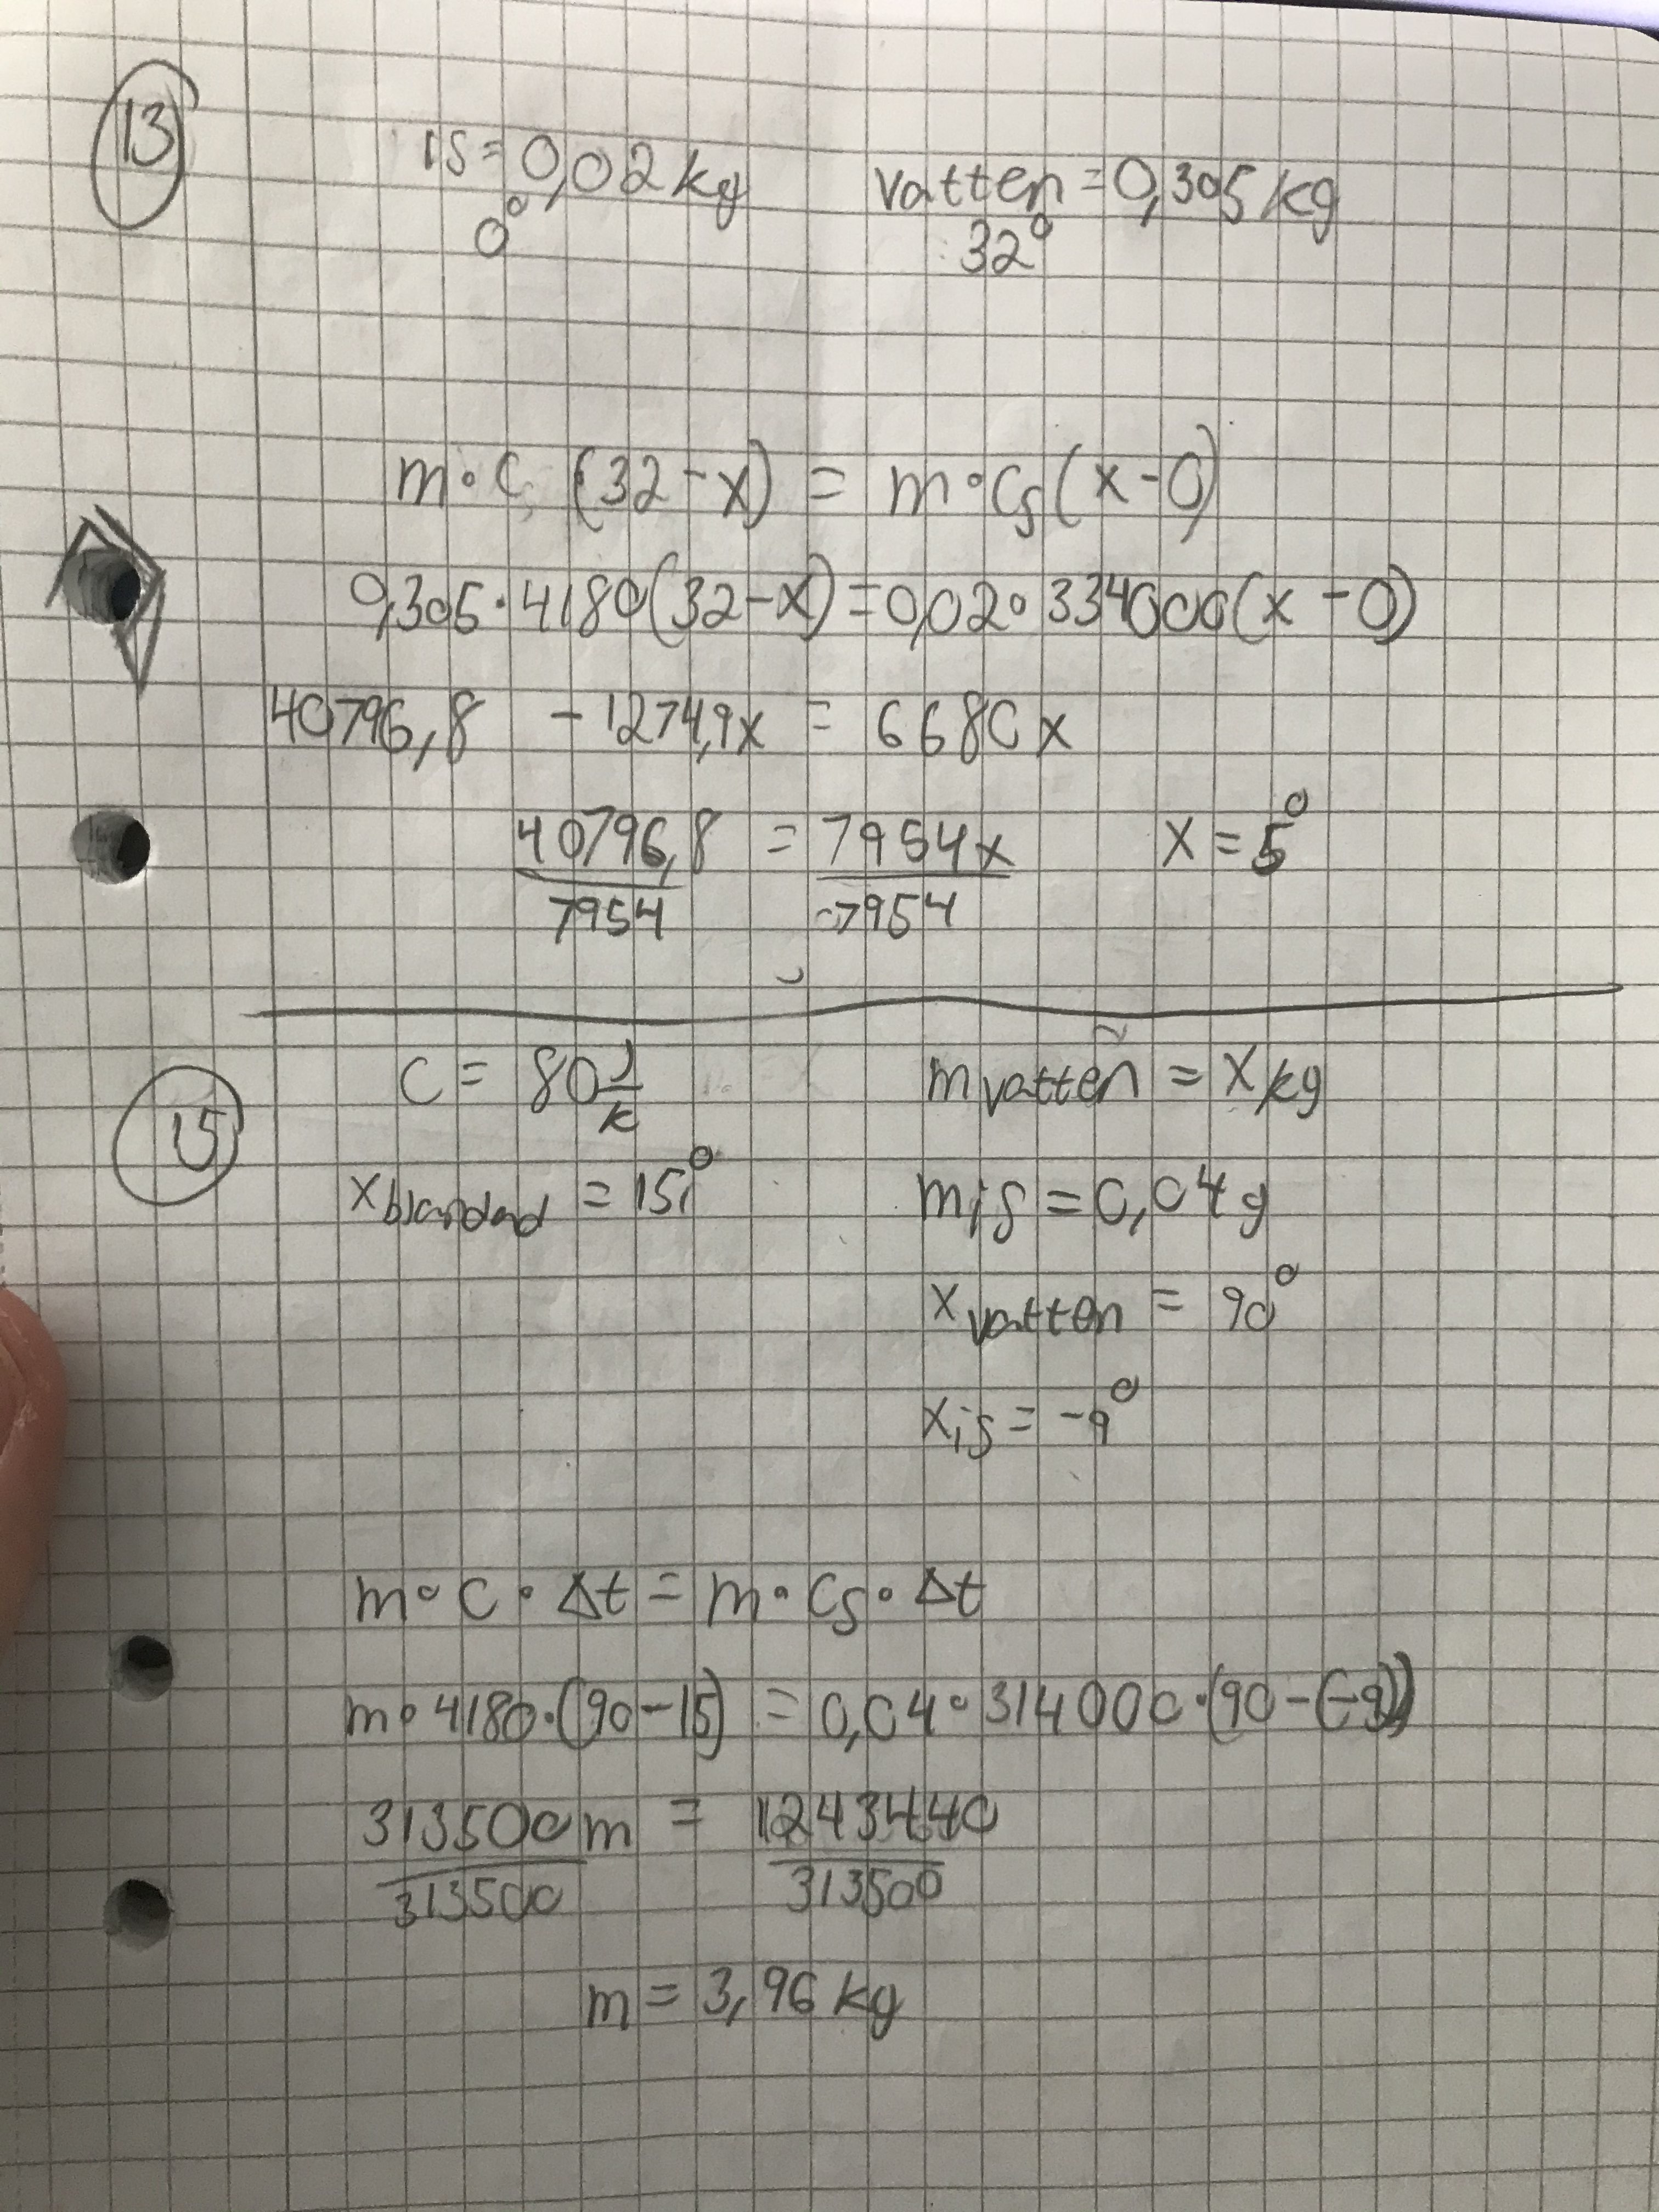 13
is = 0,02 kg vatten = 0,305 kg
0° 32°
m·c (32-x) = m·cs(x-0)
0,305·4180(32-x) = 0,02·334000(x-0)
40796,8 - 1274,9x = 6680x
40796,8 = 7954x x = 5°
7954 7954
15
c = 80 J/K m vatten = x kg
x blandad = 15° m is = 0,04 g
x vatten = 90°
x is = -9°
m·c·Δt = m·cs·Δt
m·4180·(90-15) = 0,04·314000·(90-(-9))
313500m = 1243440
313500 313500
m = 3,96 kg